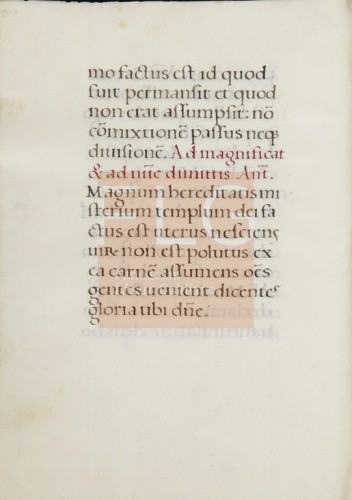 mo factus est id quod
fuit permansit et quod
non erat assumpsit: nō
cōmixtionē passus neq₃
diuisionē. Ad magnificat
& ad nūc dimittis Ant.
Magnum hereditatis mi
sterium templum dei fa
ctus est uterus nesciens
uir. non est polutus ex
ea carnē assumens oēs
gentes uenient dicentes
gloria tibi dn̄e.
FLG